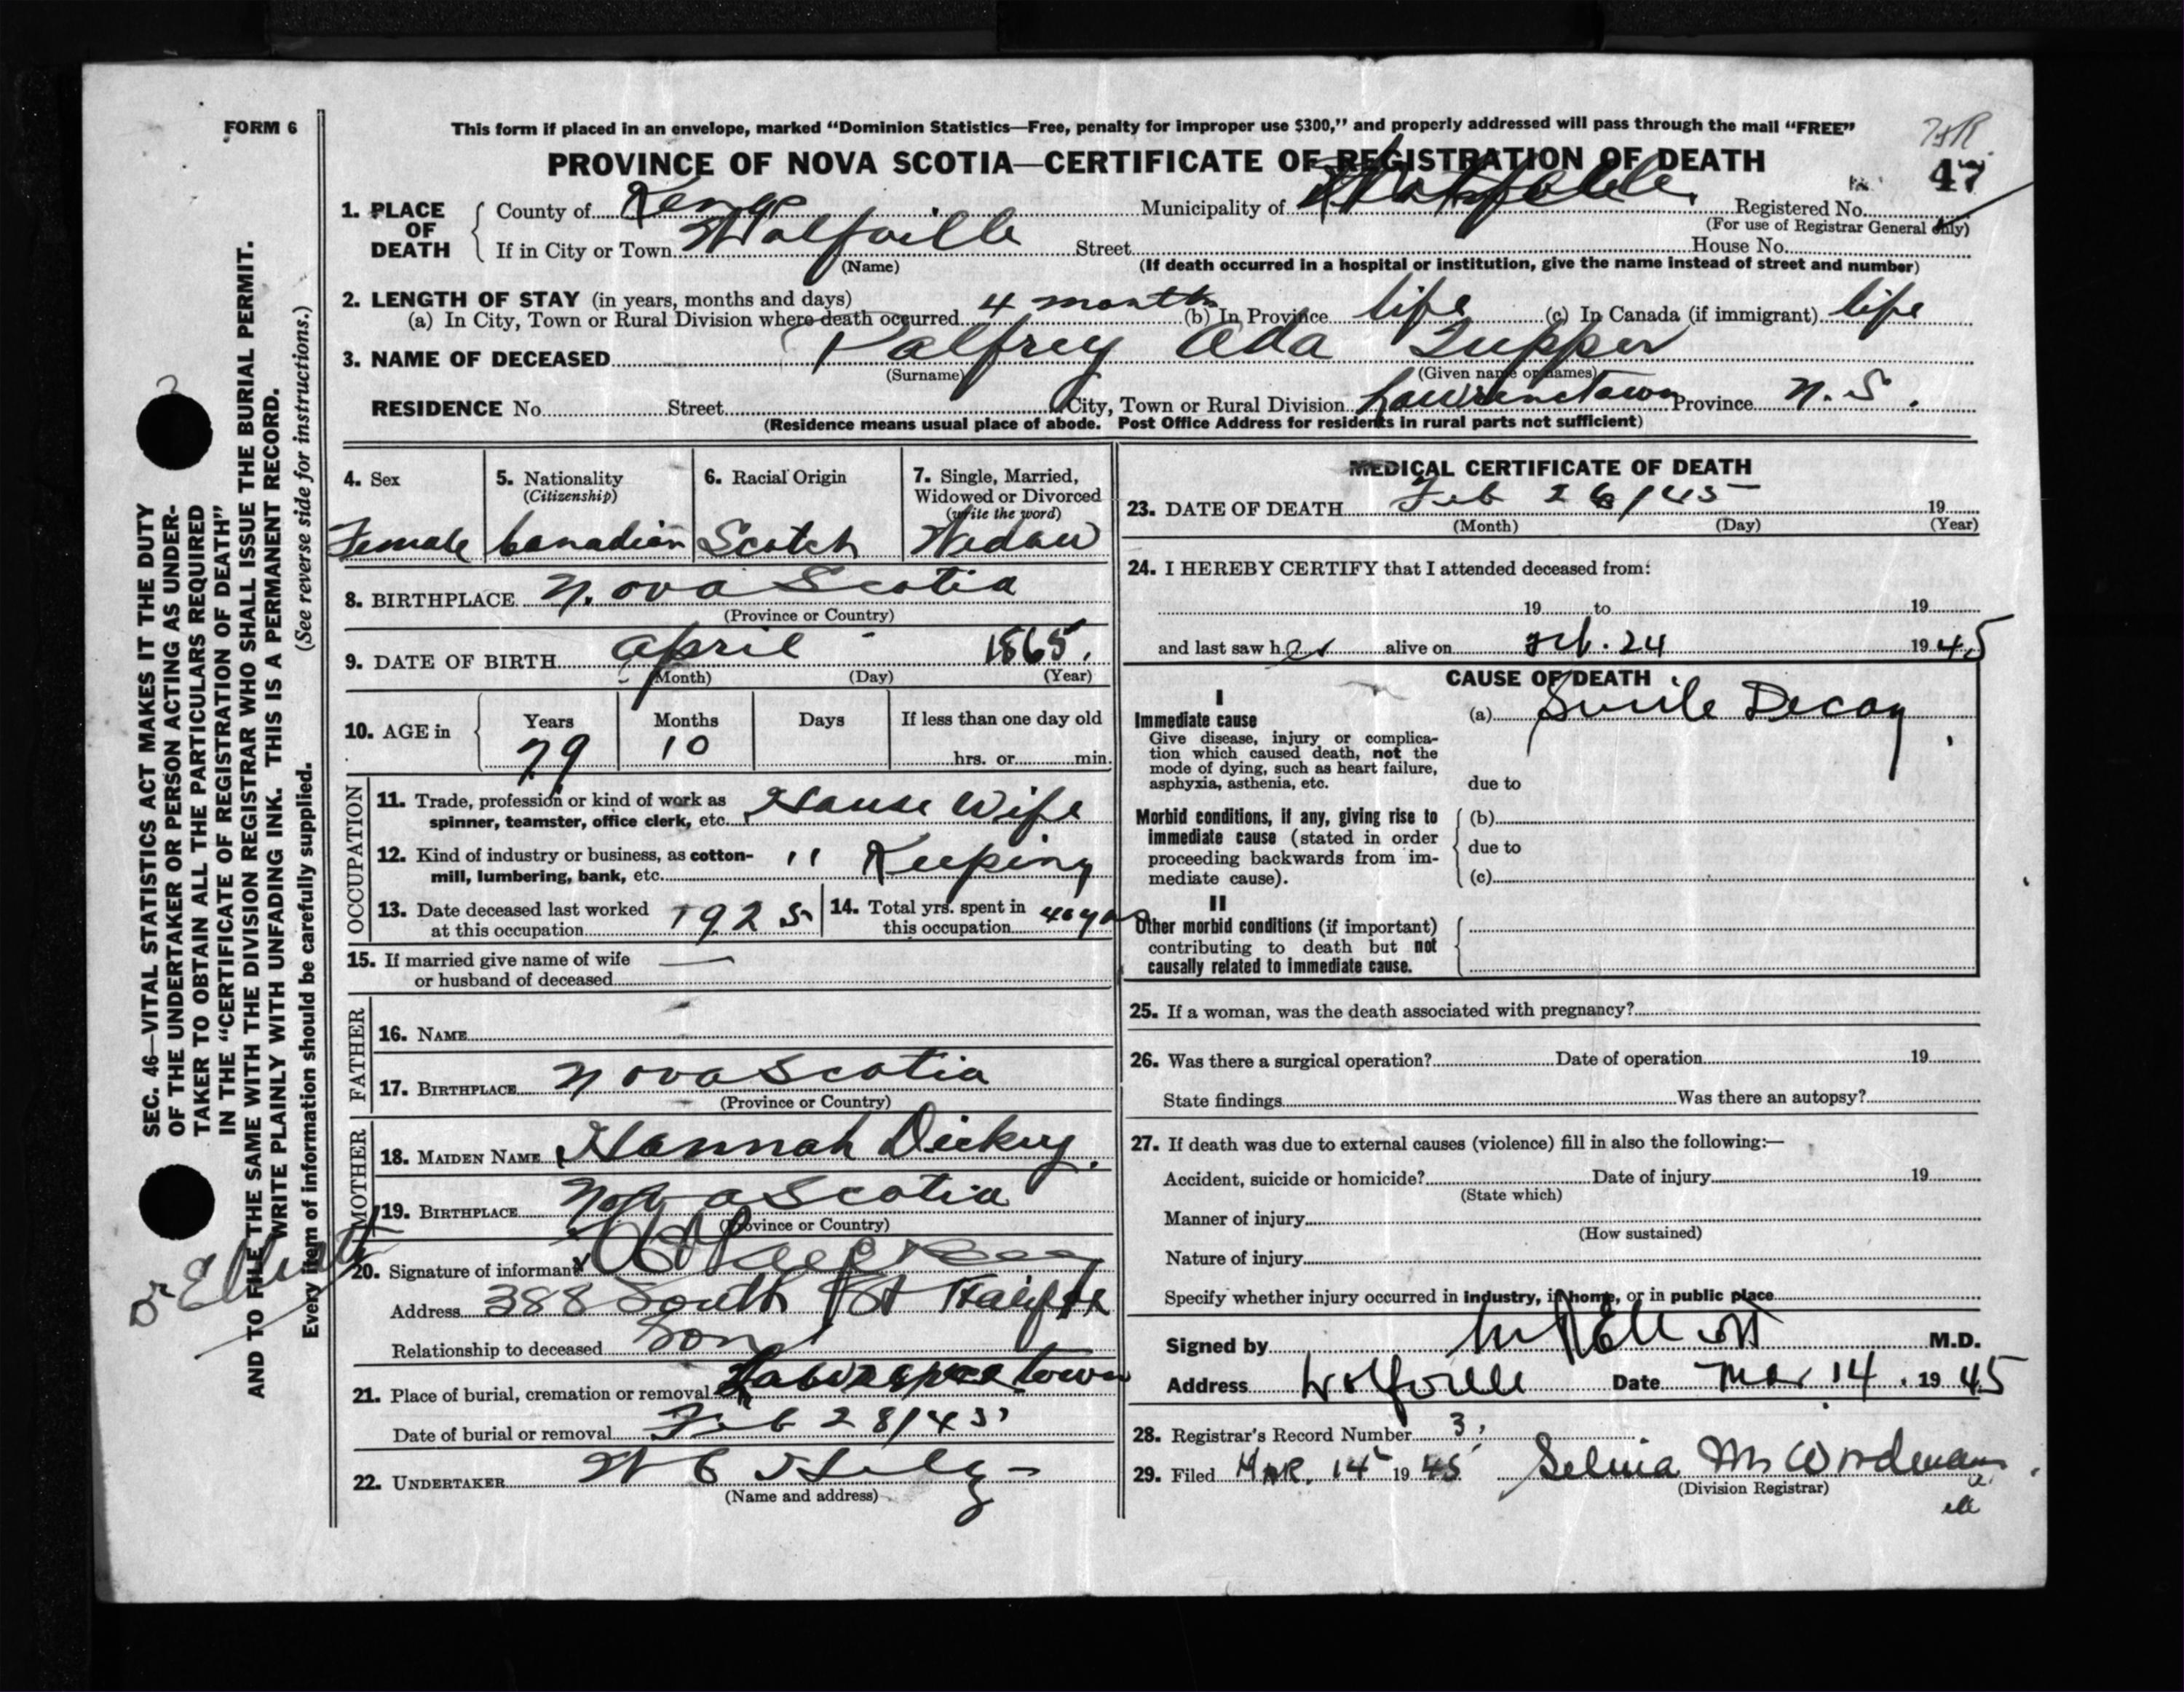 FORM 6
This form if placed in an envelope, marked “Dominion Statistics—Free, penalty for improper use $300,” and properly addressed will pass through the mail “FREE”
PROVINCE OF NOVA SCOTIA—CERTIFICATE OF REGISTRATION OF DEATH
47
1. PLACE OF DEATH
County of Kings Municipality of Registered No.
(For use of Registrar General only)
If in City or Town Wolfville Street House No.
(Name) (If death occurred in a hospital or institution, give the name instead of street and number)
2. LENGTH OF STAY (in years, months and days)
(a) In City, Town or Rural Division where death occurred 4 months (b) In Province life (c) In Canada (if immigrant) life
3. NAME OF DECEASED Palfrey Ada Tupper
(Surname) (Given name or names)
RESIDENCE No. Street City, Town or Rural Division Lawrencetown Province N.S.
(Residence means usual place of abode. Post Office Address for residents in rural parts not sufficient)
4. Sex 5. Nationality (Citizenship) 6. Racial Origin 7. Single, Married, Widowed or Divorced (write the word)
Female Canadian Scotch Widow
8. BIRTHPLACE Nova Scotia
(Province or Country)
9. DATE OF BIRTH April - 1865.
(Month) (Day) (Year)
10. AGE in Years Months Days If less than one day old
79 10 hrs. or min.
OCCUPATION
11. Trade, profession or kind of work as spinner, teamster, office clerk, etc. House Wife
12. Kind of industry or business, as cotton-mill, lumbering, bank, etc. " Keeping
13. Date deceased last worked at this occupation 1925
14. Total yrs. spent in this occupation 40 yrs
15. If married give name of wife or husband of deceased —
FATHER
16. NAME
17. BIRTHPLACE Nova Scotia
(Province or Country)
MOTHER
18. MAIDEN NAME Hannah Dickey.
19. BIRTHPLACE Nova Scotia
(Province or Country)
20. Signature of informant
Address 388 South St Halifax
Relationship to deceased Son
21. Place of burial, cremation or removal Lawrencetown
Date of burial or removal Feb 28/45
22. UNDERTAKER
(Name and address)
MEDICAL CERTIFICATE OF DEATH
23. DATE OF DEATH Feb 26/45 19
(Month) (Day) (Year)
24. I HEREBY CERTIFY that I attended deceased from:
19 to 19
and last saw her alive on Feb. 24 1945
CAUSE OF DEATH
I
Immediate cause
Give disease, injury or complica-
tion which caused death, not the
mode of dying, such as heart failure,
asphyxia, asthenia, etc.
(a) Senile Decay
due to
Morbid conditions, if any, giving rise to
immediate cause (stated in order
proceeding backwards from im-
mediate cause).
(b)
due to
(c)
II
Other morbid conditions (if important)
contributing to death but not
causally related to immediate cause.
25. If a woman, was the death associated with pregnancy?
26. Was there a surgical operation? Date of operation 19
State findings Was there an autopsy?
27. If death was due to external causes (violence) fill in also the following:—
Accident, suicide or homicide? Date of injury 19
(State which)
Manner of injury
(How sustained)
Nature of injury
Specify whether injury occurred in industry, in home, or in public place
Signed by Elliott M.D.
Address Wolfville Date Mar 14. 1945
28. Registrar's Record Number 3.
29. Filed MAR. 14 1945
(Division Registrar)
SEC. 46—VITAL STATISTICS ACT MAKES IT THE DUTY
OF THE UNDERTAKER OR PERSON ACTING AS UNDER-
TAKER TO OBTAIN ALL THE PARTICULARS REQUIRED
IN THE “CERTIFICATE OF REGISTRATION OF DEATH”
AND TO FILE THE SAME WITH THE DIVISION REGISTRAR WHO SHALL ISSUE THE BURIAL PERMIT.
WRITE PLAINLY WITH UNFADING INK. THIS IS A PERMANENT RECORD.
Every item of information should be carefully supplied. (See reverse side for instructions.)
Dr Elliott